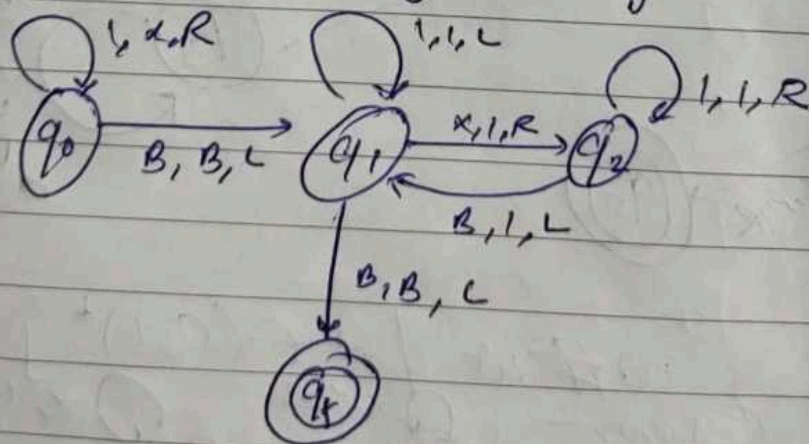 1, x, R
1, 1, L
1, 1, R
q0
B, B, L
q1
x, 1, R
q2
B, 1, L
B, B, L
qf